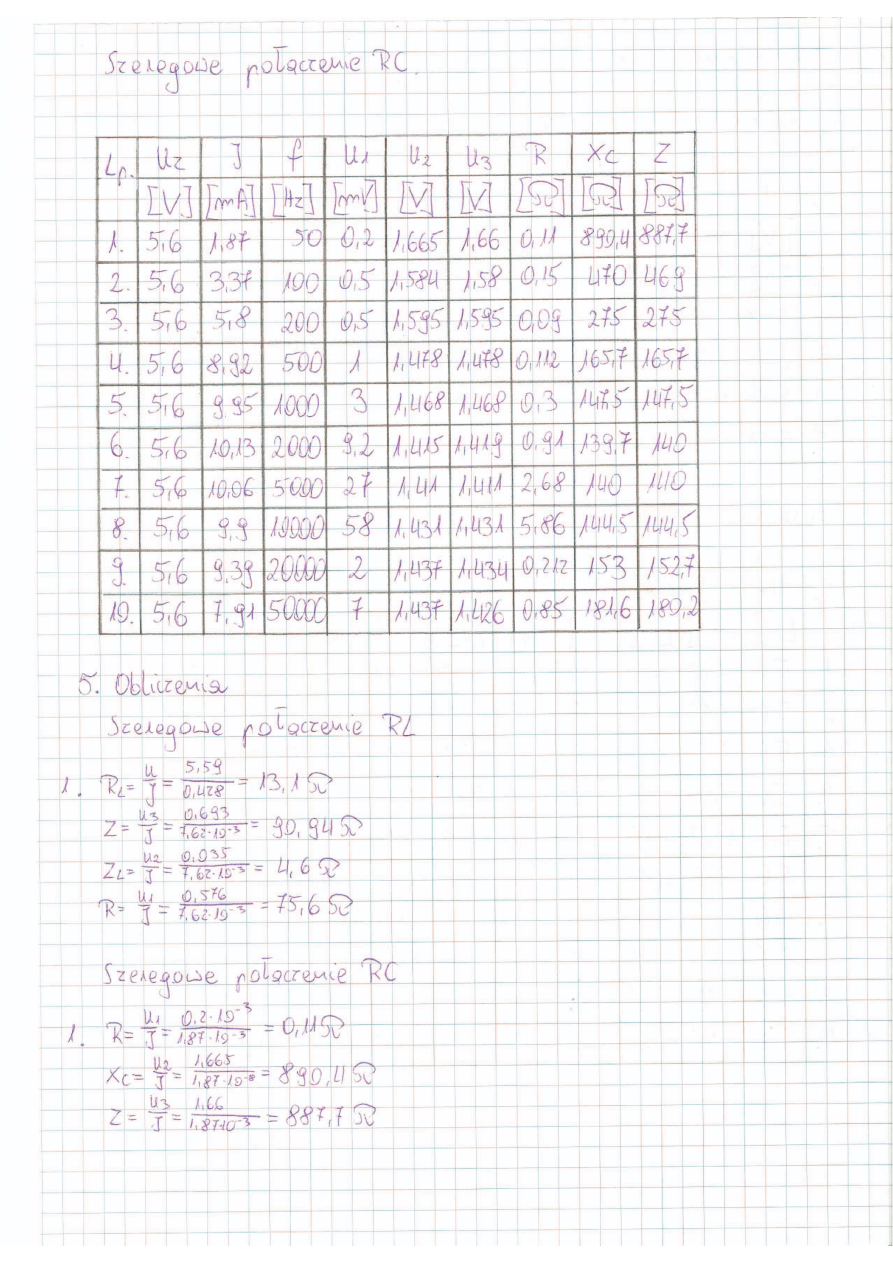 Szeregowe połączenie RC.
Lp. Uz I f U1 U2 U3 R Xc Z
[V] [mA] [Hz] [mV] [V] [V] [Ω] [Ω] [Ω]
1. 5,6 1,87 50 0,2 1,665 1,66 0,11 890,4 887,7
2. 5,6 3,37 100 0,5 1,584 1,58 0,15 470 469
3. 5,6 5,8 200 0,5 1,595 1,595 0,09 275 275
4. 5,6 8,92 500 1 1,478 1,478 0,112 165,7 165,7
5. 5,6 9,95 1000 3 1,468 1,468 0,3 147,5 147,5
6. 5,6 10,13 2000 9,2 1,415 1,419 0,91 139,7 140
7. 5,6 10,06 5000 27 1,41 1,411 2,68 140 140
8. 5,6 9,9 10000 58 1,431 1,431 5,86 144,5 144,5
9. 5,6 9,39 20000 2 1,437 1,434 0,212 153 152,7
10. 5,6 7,91 50000 7 1,437 1,426 0,85 181,6 180,2
5. Obliczenia
Szeregowe połączenie RL
1. RL = U/I = 5,59/0,428 = 13,1 Ω
Z = U3/I = 0,693/7,62·10⁻³ = 90,94 Ω
ZL = U2/I = 0,035/7,62·10⁻³ = 4,6 Ω
R = U1/I = 0,576/7,62·10⁻³ = 75,6 Ω
Szeregowe połączenie RC
1. R = U1/I = 0,2·10⁻³/1,87·10⁻³ = 0,11 Ω
Xc = U2/I = 1,665/1,87·10⁻³ = 890,4 Ω
Z = U3/I = 1,66/1,87·10⁻³ = 887,7 Ω